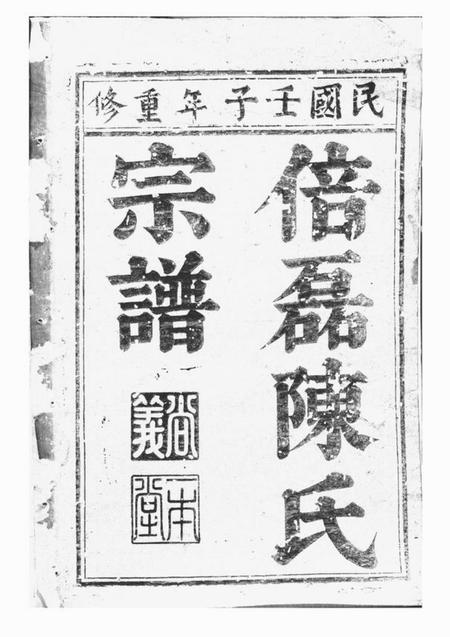 民國壬子年重修
倍磊陳氏
宗譜
尚義
本堂